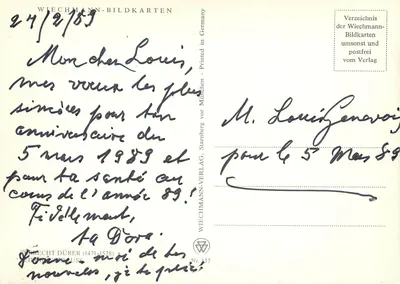 WIECHMANN-BILDKARTEN
24/2/89
Mon cher Louis,
mes vœux les plus
sincères pour ton
anniversaire du
5 mars 1989 et
pour ta santé au
cours de l'année 89!
Fidèlement,
ta Dora.
Donne-moi de tes
nouvelles, je te prie!
ALBRECHT DÜRER (1471-1528)
WIECHMANN-VERLAG, Starnberg vor München - Printed in Germany
Verzeichnis
der Wiechmann-
Bildkarten
umsonst und
postfrei
vom Verlag
M. Louis Genevois
pour le 5 Mars 89